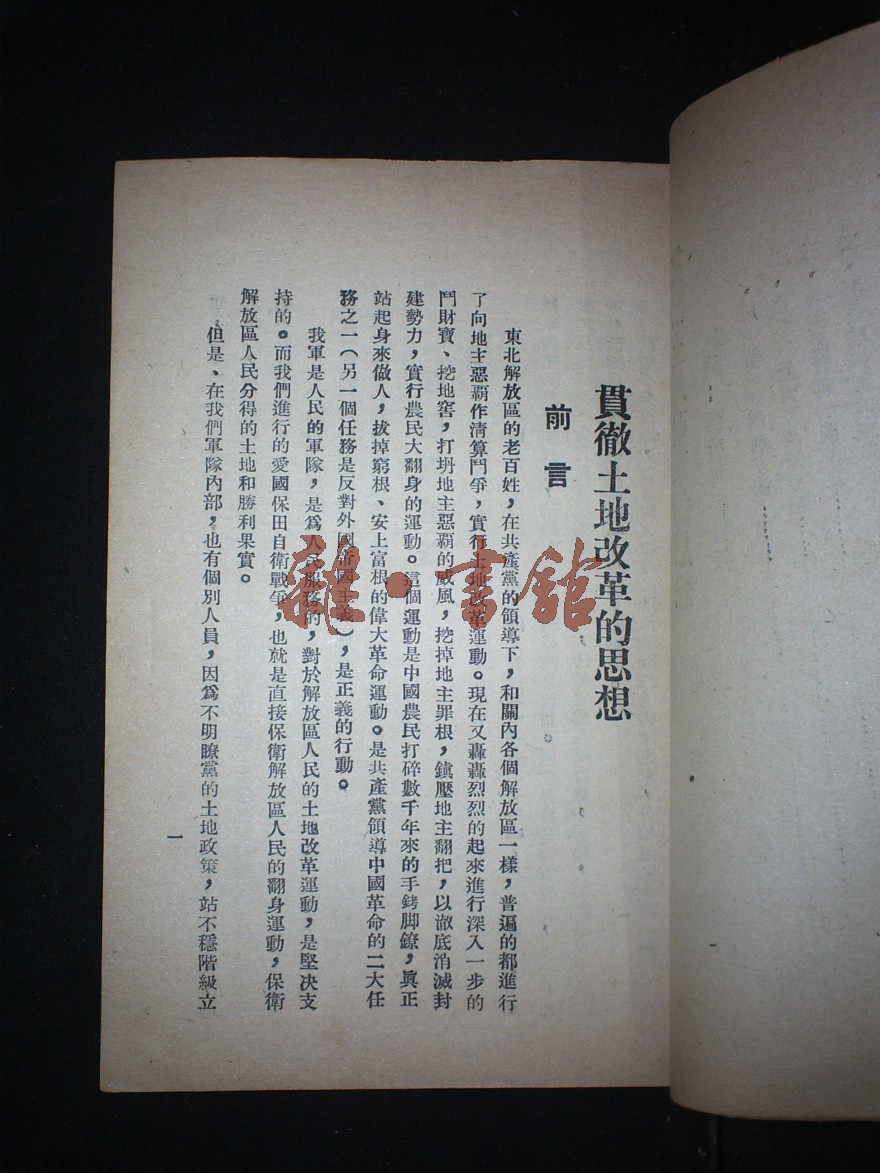 貫徹土地改革的思想
前言
東北解放區的老百姓，在共產黨的領導下，和關內各個解放區一樣，普遍的都進行
了向地主惡霸作清算鬥爭，實行土地改革運動。現在又轟轟烈烈的起來進行深入一步的
鬥財寶、挖地窖，打坍地主惡霸的威風，挖掉地主罪根，鎮壓地主翻把，以澈底消滅封
建勢力，實行農民大翻身的運動。這個運動是中國農民打碎數千年來的手銬脚鐐，眞正
站起身來做人，拔掉窮根、安上富根的偉大革命運動。是共產黨領導中國革命的二大任
務之一（另一個任務是反對外國帝國主義），是正義的行動。
我軍是人民的軍隊，是爲人民服務的，對於解放區人民的土地改革運動，是堅决支
持的。而我們進行的愛國保田自衛戰爭，也就是直接保衛解放區人民的翻身運動，保衛
解放區人民分得的土地和勝利果實。
但是、在我們軍隊內部，也有個別人員，因爲不明瞭黨的土地政策，站不穩階級立
一
雜·書館